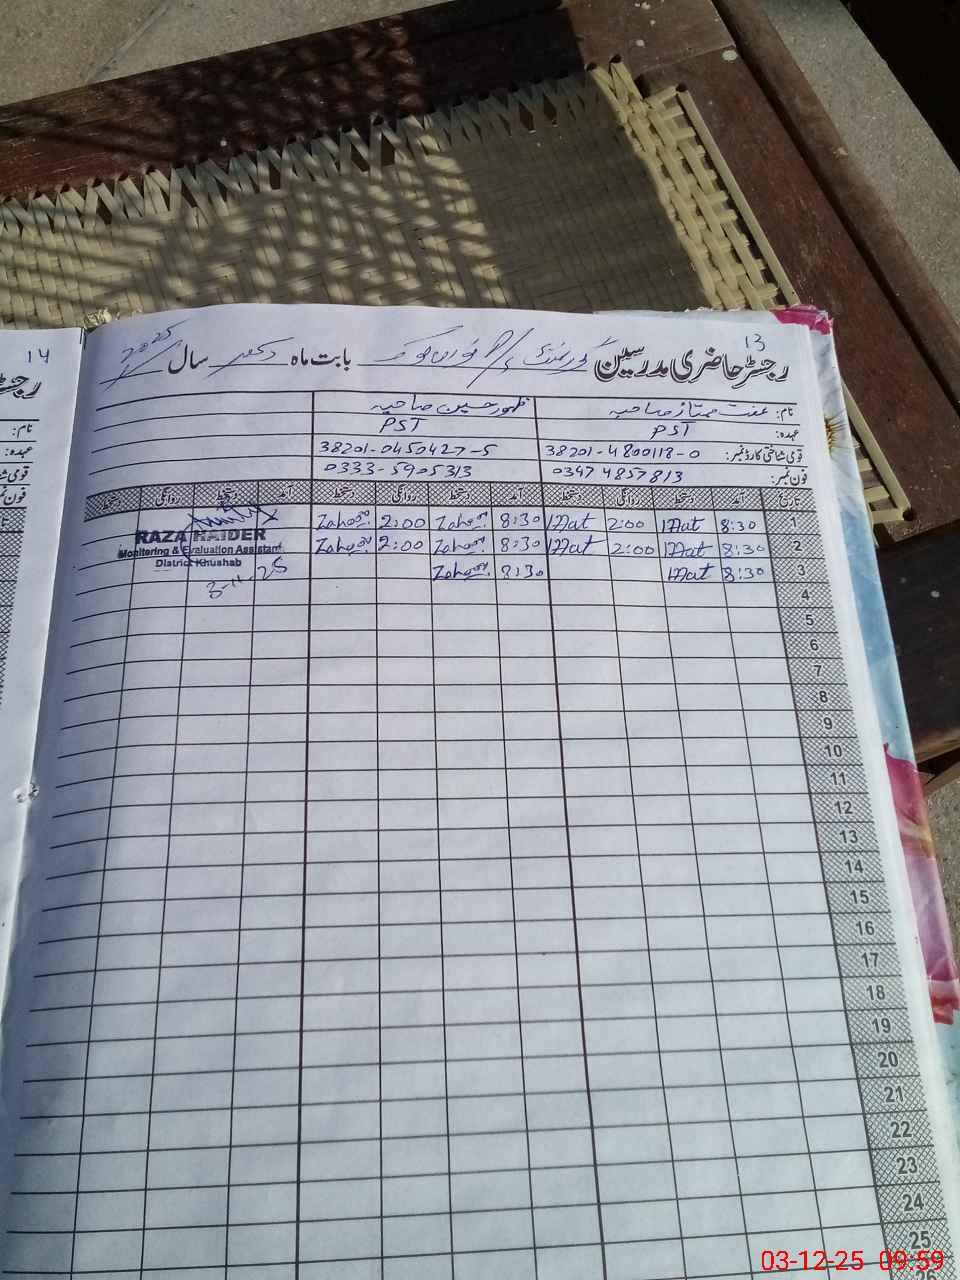 14
13
رجسٹر حاضری مدرسین گورنمنٹ P/S بابت ماہ دسمبر سال 2025
نام: عفت ممتاز صاحبہ ظہور حسین صاحبہ
عہدہ: PST PST
قومی شناختی کارڈ نمبر: 38201-4800118-0 38201-0450427-5
فون نمبر: 0347 4857813 0333-5905313
تاریخ آمد دستخط روانگی دستخط آمد دستخط روانگی دستخط آمد دستخط روانگی دستخط
1 8:30 Iffat 2:00 Iffat 8:30 Zahoor 2:00 Zahoor
2 8:30 Iffat 2:00 Iffat 8:30 Zahoor 2:00 Zahoor
3 8:30 Iffat 8:30 Zahoor
RAZA HAIDER
Monitoring & Evaluation Assistant
District Khushab
3-11-25
4
5
6
7
8
9
10
11
12
13
14
15
16
17
18
19
20
21
22
23
24
25
26
رجسٹر
نام:
عہدہ:
قومی شنا
فون نمبر
03-12-25 09:59